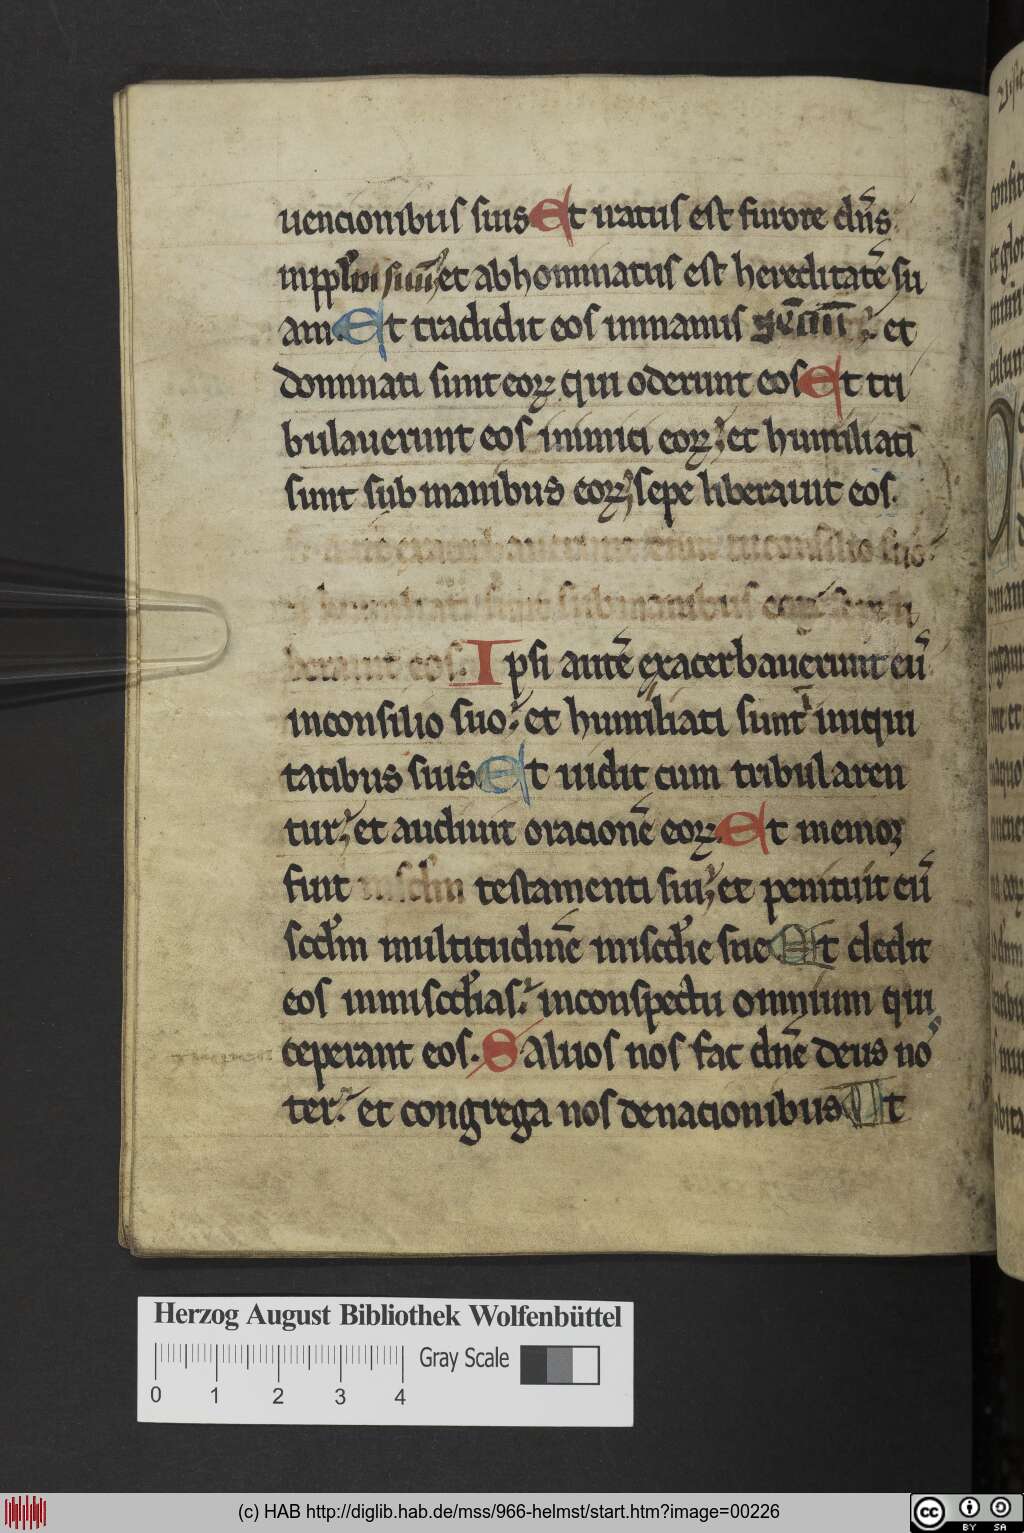 uencionibus suis Et iratus est furore dñs
inpplm suū et abhominatus est hereditatē su
am. Et tradidit eos inmanus genciū et
dominati sunt eoꝝ qui oderunt eos Et tri
bulauerunt eos inimici eoꝝ et humiliati
sunt sub manibus eoꝝ sepe liberauit eos.
autē exacerbauerunt eum inconsilio suo
humiliati sunt sub manibus eoꝝ
berauit eos. Ipsi autē exacerbauerunt eū
inconsilio suo et humiliati sunt iniqui
tatibus suis Et uidit cum tribularen
tur et audiuit oracionē eoꝝ. Et memor
fuit testamenti sui et penituit eū
scdm multitudinē miscdie sue Et dedit
eos inmiscdias. inconspectu omnium qui
ceperant eos. Saluos nos fac dnē deus no
ter. et congrega nos denacionibus Ut
Herzog August Bibliothek Wolfenbüttel
Gray Scale
0 1 2 3 4
(c) HAB http://diglib.hab.de/mss/966-helmst/start.htm?image=00226
cc BY SA